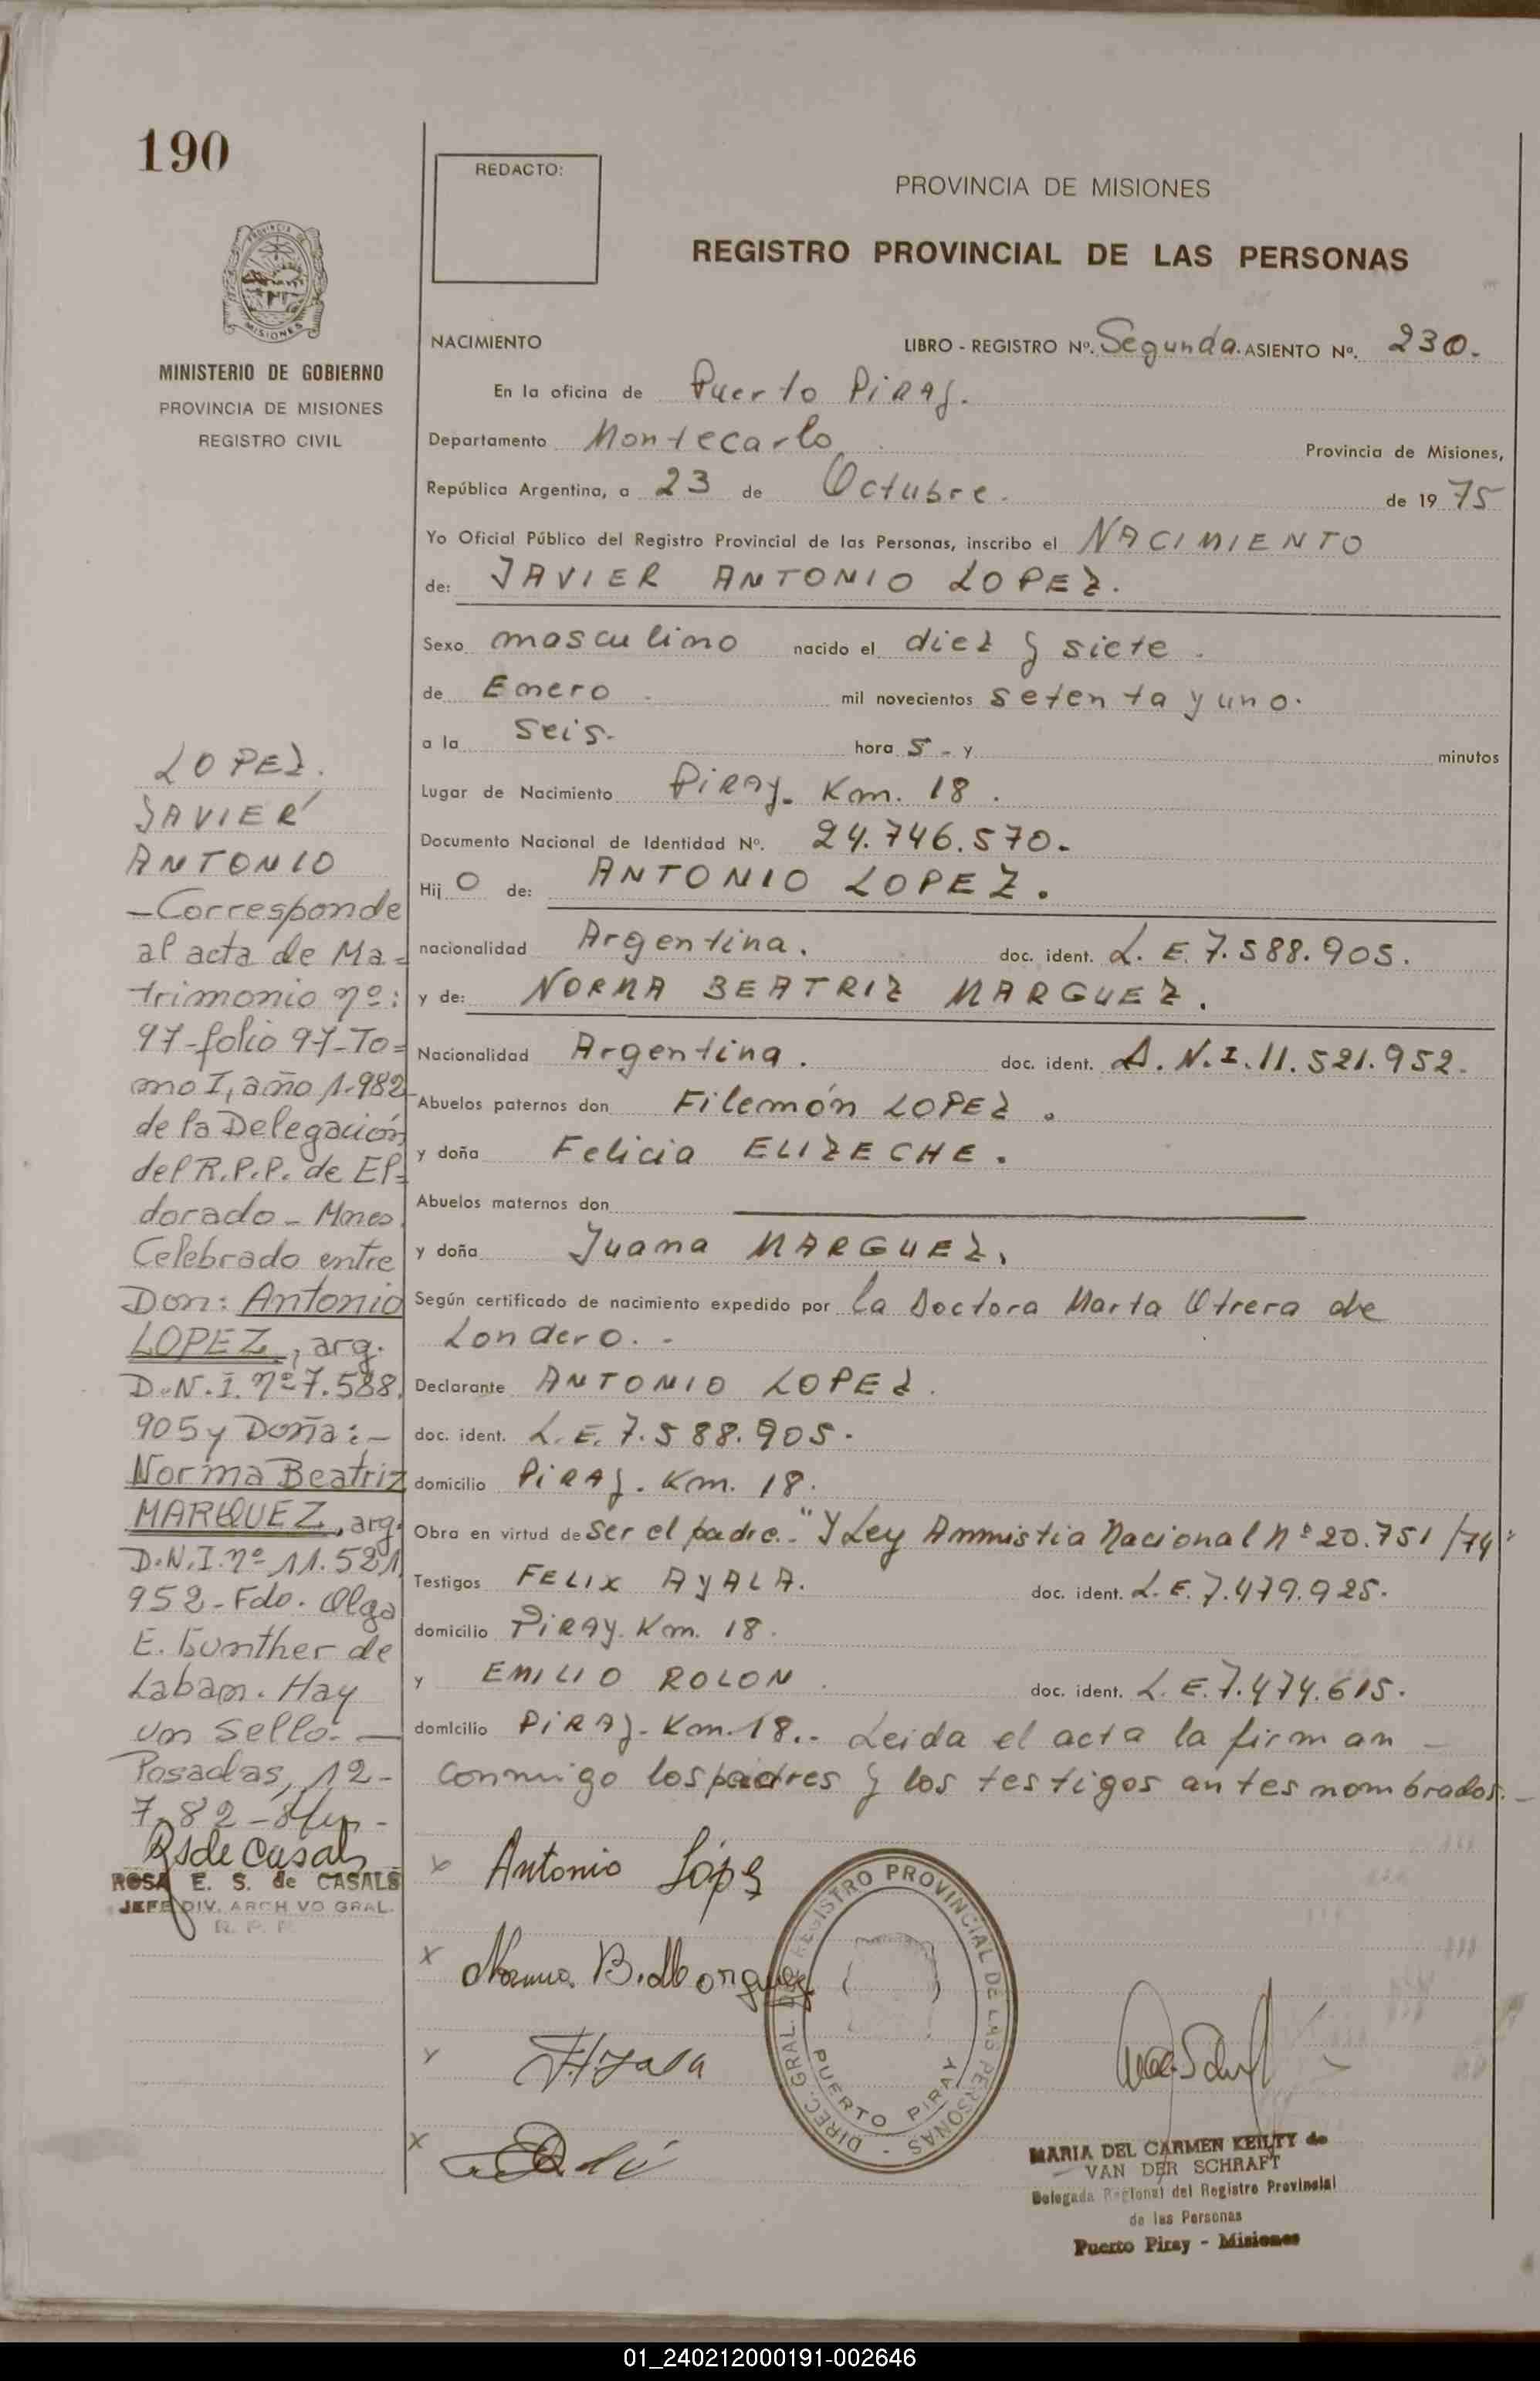 190
REDACTO:
PROVINCIA DE MISIONES
REGISTRO PROVINCIAL DE LAS PERSONAS
PROVINCIA DE
MISIONES
MINISTERIO DE GOBIERNO
PROVINCIA DE MISIONES
REGISTRO CIVIL
NACIMIENTO
LIBRO - REGISTRO Nº. Segunda. ASIENTO Nº. 230.
En la oficina de Puerto PiRAy.
Departamento Montecarlo Provincia de Misiones,
República Argentina, a 23 de Octubre. de 1975
Yo Oficial Público del Registro Provincial de las Personas, inscribo el NACIMIENTO
de: JAVIER ANTONIO LOPEZ.
Sexo masculino nacido el diez y siete.
de Enero. mil novecientos setenta y uno.
a la seis. hora s - y minutos
Lugar de Nacimiento PiRAy. Km. 18.
Documento Nacional de Identidad Nº. 24.746.570.
Hij O de: ANTONIO LOPEZ.
nacionalidad Argentina. doc. ident. L. E. 7.588.905.
y de: NORMA BEATRIZ MARGUEZ.
Nacionalidad Argentina. doc. ident. D.N.I. 11.521.952.
Abuelos paternos don Filemón LOPEZ.
y doña Felicia ELIZECHE.
Abuelos maternos don
y doña Juana MARGUEZ.
Según certificado de nacimiento expedido por la Doctora Marta Otrera de
Londero. -
Declarante ANTONIO LOPEZ.
doc. ident. L.E. 7.588.905.
domicilio PiRAy. Km. 18.
Obra en virtud de ser el padre. "Y Ley Ammistia Nacional Nº 20.751/74"
Testigos FELIX AYALA. doc. ident. L.E. 7.479.925.
domicilio PiRAY. Km. 18.
y EMILIO ROLON. doc. ident. L.E. 7.474.615.
domicilio PiRAy. Km. 18.. Leida el acta la firman -
conmigo los padres y los testigos antes nombrados. -
LOPEZ.
JAVIER
ANTONIO
- Corresponde
al acta de Ma=
trimonio nº:
97-folio 97-To=
mo I, año 1.982
de la Delegación
del R.P.P. de El=
dorado - Mnes.
Celebrado entre
Don: Antonio
LOPEZ, arg.
D.N.I. nº 7.588.
905 y Doña: -
Norma Beatriz
MARQUEZ, arg.
D.N.I. nº 11.521
952 - Fdo. Olga
E. Gunther de
Laban. Hay
un sello. -
Posadas, 12-
7-82 -
RSde Casals
ROSA E. S. de CASALS
JEFE DIV. ARCHIVO GRAL.
R. P. P.
x Antonio López
x Norma B. Marquez
x FAyala
x
DIREC. GRAL. DEL REGISTRO PROVINCIAL DE LAS PERSONAS -
PUERTO PIRAY
MARIA DEL CARMEN KEILTY de
VAN DER SCHRAFT
Delegada Regional del Registro Provincial
de las Personas
Puerto Piray - Misiones
01_240212000191-002646